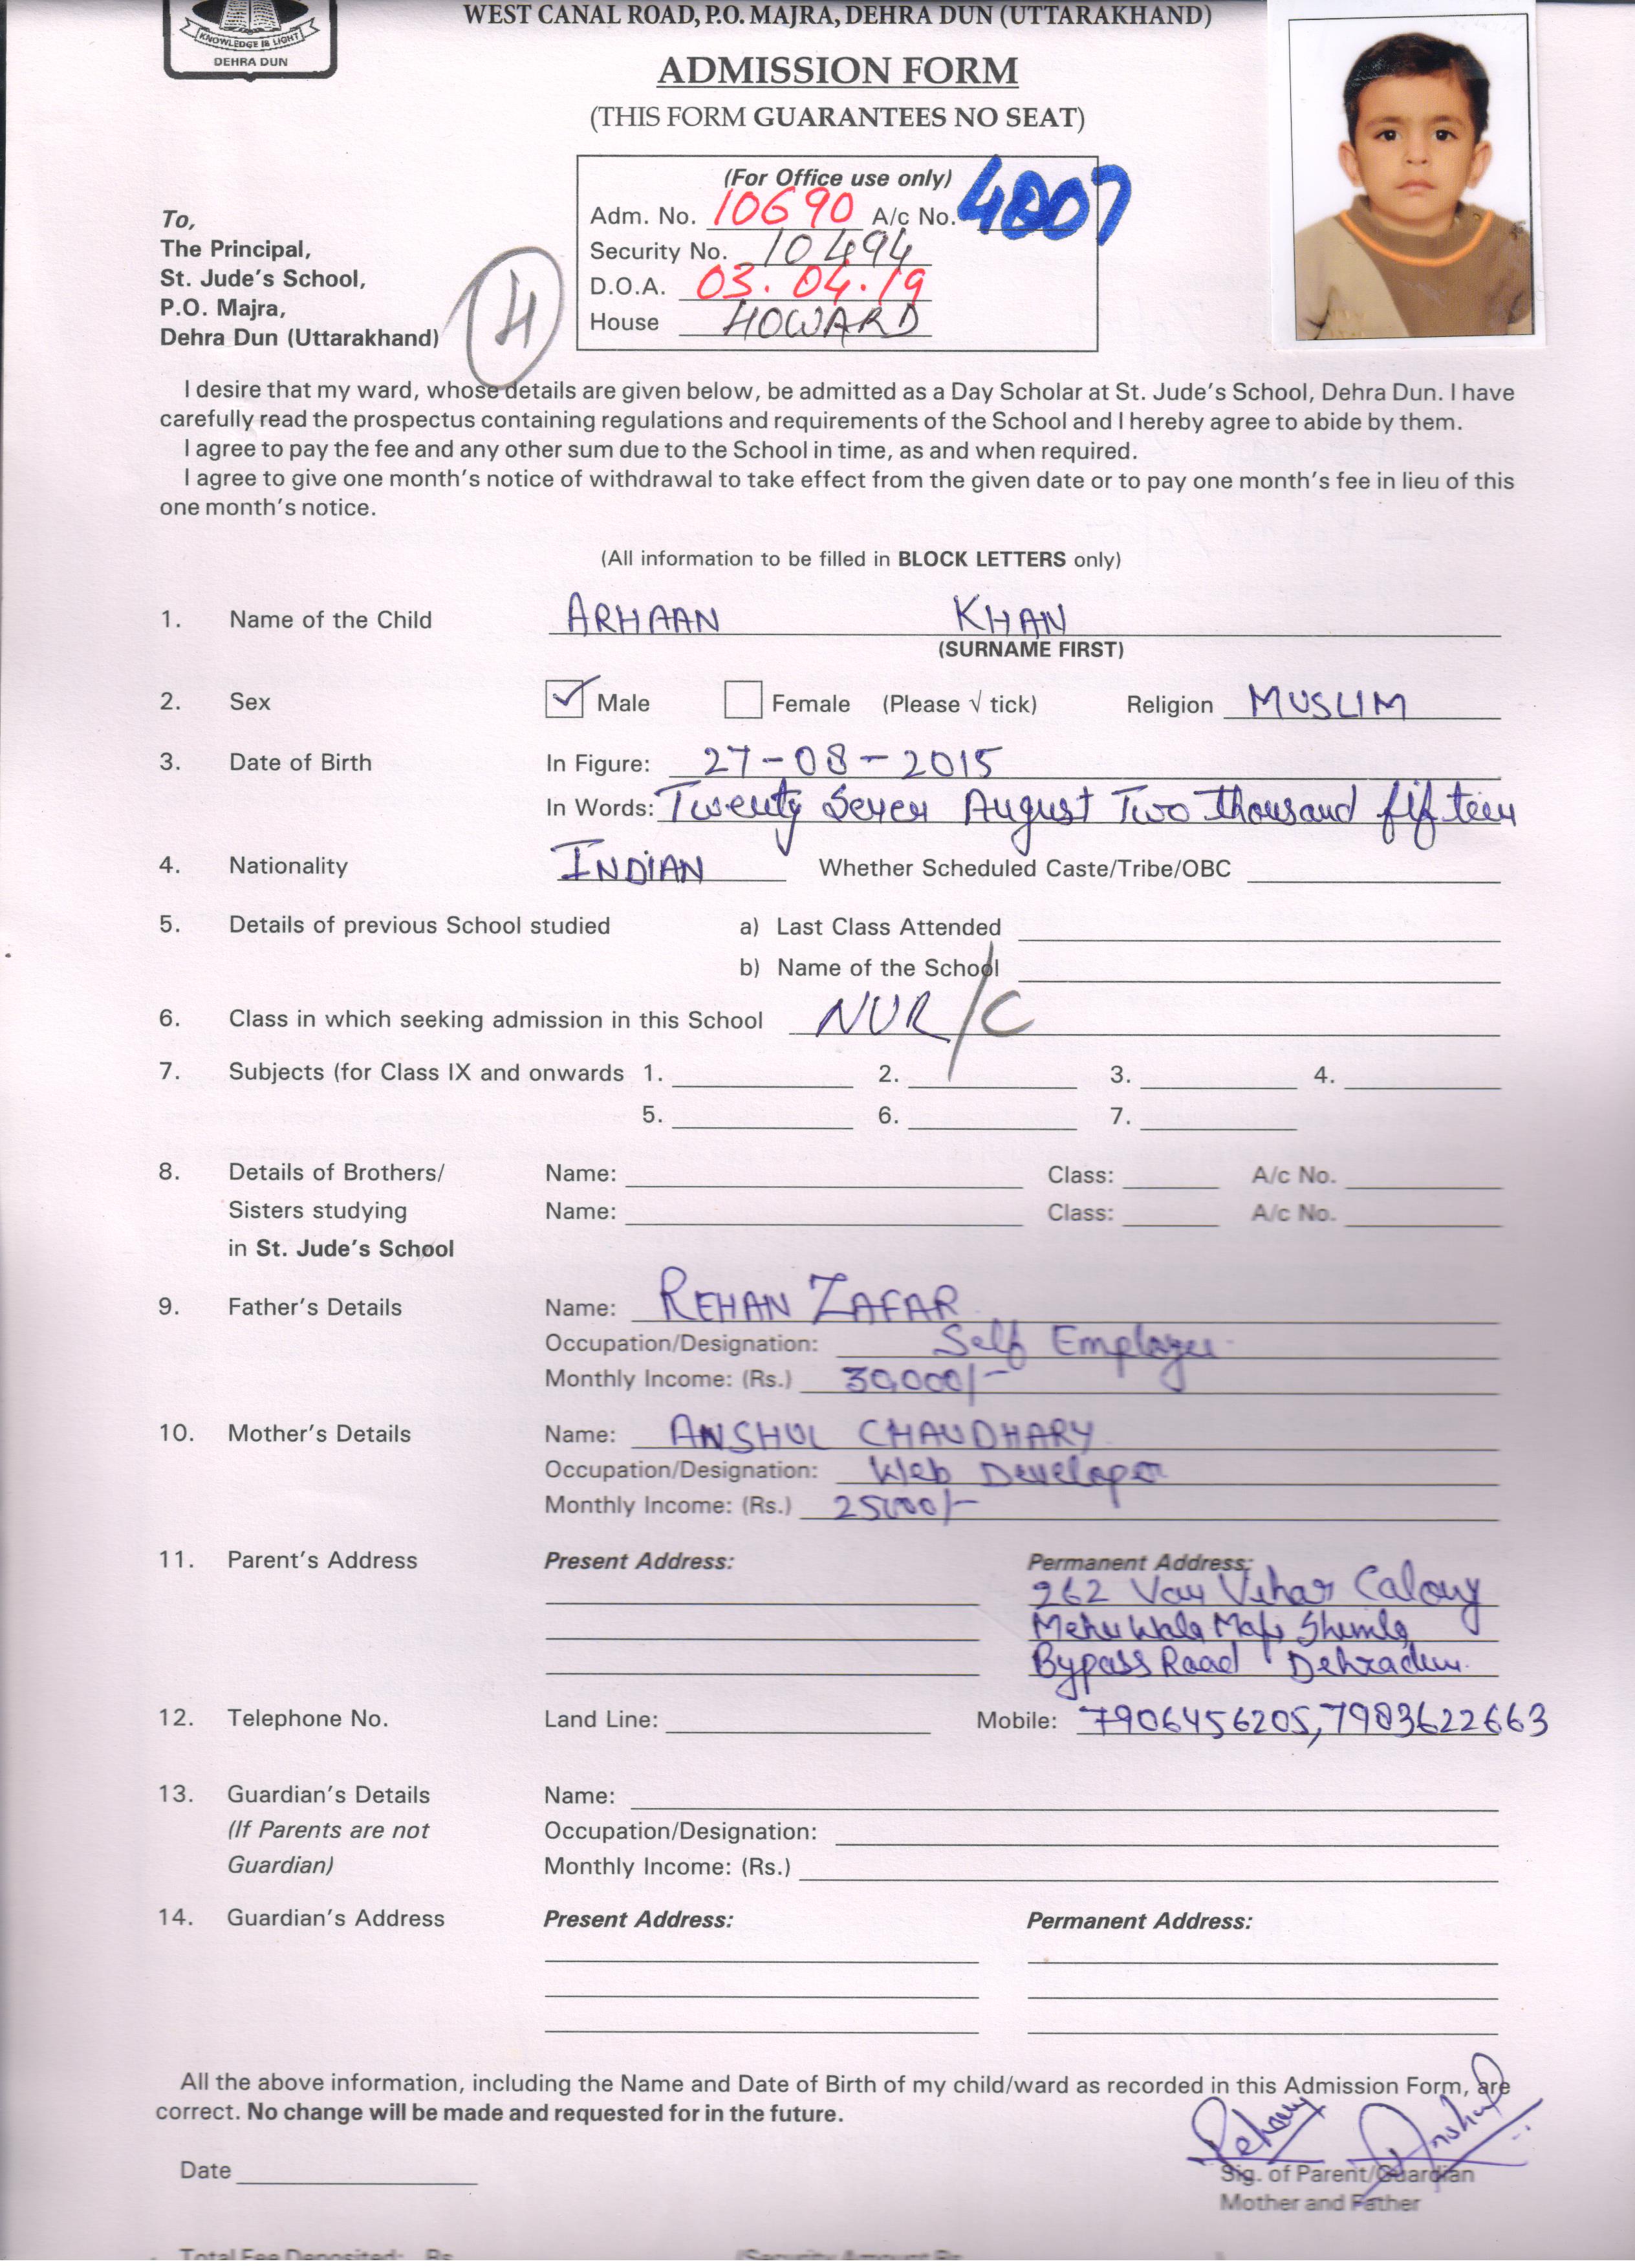 KNOWLEDGE IS LIGHT
DEHRA DUN
WEST CANAL ROAD, P.O. MAJRA, DEHRA DUN (UTTARAKHAND)
ADMISSION FORM
(THIS FORM GUARANTEES NO SEAT)
(For Office use only)
Adm. No. 10690 A/c No. 4807
Security No. 10494
D.O.A. 03.04.19
House HOWARD
To,
The Principal,
St. Jude's School,
P.O. Majra,
Dehra Dun (Uttarakhand)
4
I desire that my ward, whose details are given below, be admitted as a Day Scholar at St. Jude's School, Dehra Dun. I have
carefully read the prospectus containing regulations and requirements of the School and I hereby agree to abide by them.
I agree to pay the fee and any other sum due to the School in time, as and when required.
I agree to give one month's notice of withdrawal to take effect from the given date or to pay one month's fee in lieu of this
one month's notice.
(All information to be filled in BLOCK LETTERS only)
1. Name of the Child ARHAAN KHAN
(SURNAME FIRST)
2. Sex ✓ Male Female (Please √ tick) Religion MUSLIM
3. Date of Birth In Figure: 27-08-2015
In Words: Twenty Seven August Two thousand fifteen
4. Nationality INDIAN Whether Scheduled Caste/Tribe/OBC
5. Details of previous School studied a) Last Class Attended
b) Name of the School
6. Class in which seeking admission in this School NUR/C
7. Subjects (for Class IX and onwards 1. 2. 3. 4.
5. 6. 7.
8. Details of Brothers/ Name: Class: A/c No.
Sisters studying Name: Class: A/c No.
in St. Jude's School
9. Father's Details Name: REHAN ZAFAR
Occupation/Designation: Self Employee
Monthly Income: (Rs.) 30,000/-
10. Mother's Details Name: ANSHUL CHAUDHARY
Occupation/Designation: Web Developer
Monthly Income: (Rs.) 25000/-
11. Parent's Address Present Address: Permanent Address:
262 Van Vihar Calony
Mehuwala Mafi Shimla
Bypass Road Dehradun.
12. Telephone No. Land Line: Mobile: 7906456205, 7983622663
13. Guardian's Details Name:
(If Parents are not Occupation/Designation:
Guardian) Monthly Income: (Rs.)
14. Guardian's Address Present Address: Permanent Address:
All the above information, including the Name and Date of Birth of my child/ward as recorded in this Admission Form, are
correct. No change will be made and requested for in the future.
Rehan Anshul
Date Sig. of Parent/Guardian
Mother and Father
Total Fee Deposited: Rs. /Security Amount Rs.